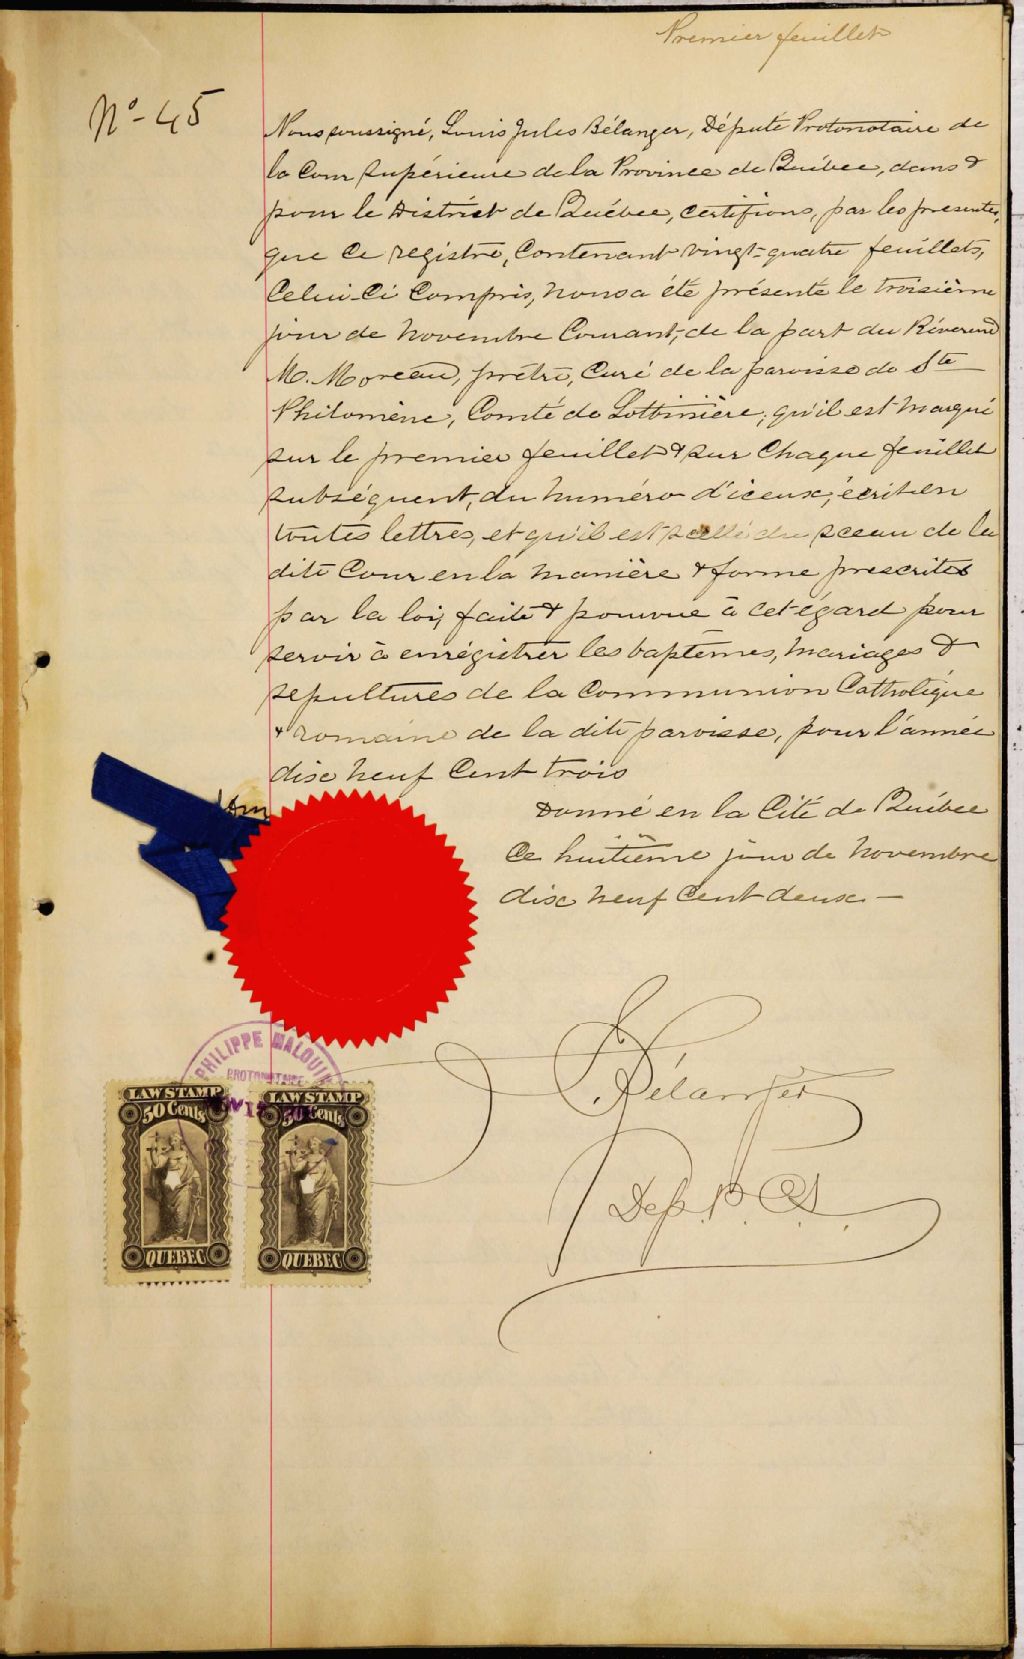 Premier feuillet
No - 45
Nous soussigné, Louis Jules Bélanger, Député Protonotaire de
la Cour Supérieure de la Province de Québec, dans &
pour le District de Québec, certifions, par les présentes,
que ce registre, contenant vingt-quatre feuillets,
celui-ci compris, nous a été présenté le troisième
jour de Novembre Courant, de la part du Révérend
M. Moreau, prêtre, Curé de la paroisse de Ste
Philomène, Comté de Lotbinière; qu'il est marqué
sur le premier feuillet & sur chaque feuillet
subséquent, du numéro d'iceux, écrit en
toutes lettres, et qu'il est scellé du sceau de la
dite Cour en la manière & forme prescrites
par la loi, faite & pourvue à cet égard pour
servir à enrégistrer les baptêmes, mariages &
sépultures de la Communion Catholique
& romaine de la dite paroisse, pour l'année
dix neuf cent trois
Donné en la Cité de Québec
ce huitième jour de Novembre
dix neuf cent deux —
L. J. Bélanger
Dep. P. C. S.
PHILIPPE MALOUIN
PROTONOTAIRE
LAW STAMP LAW STAMP
50 Cents 50 Cents
QUEBEC QUEBEC